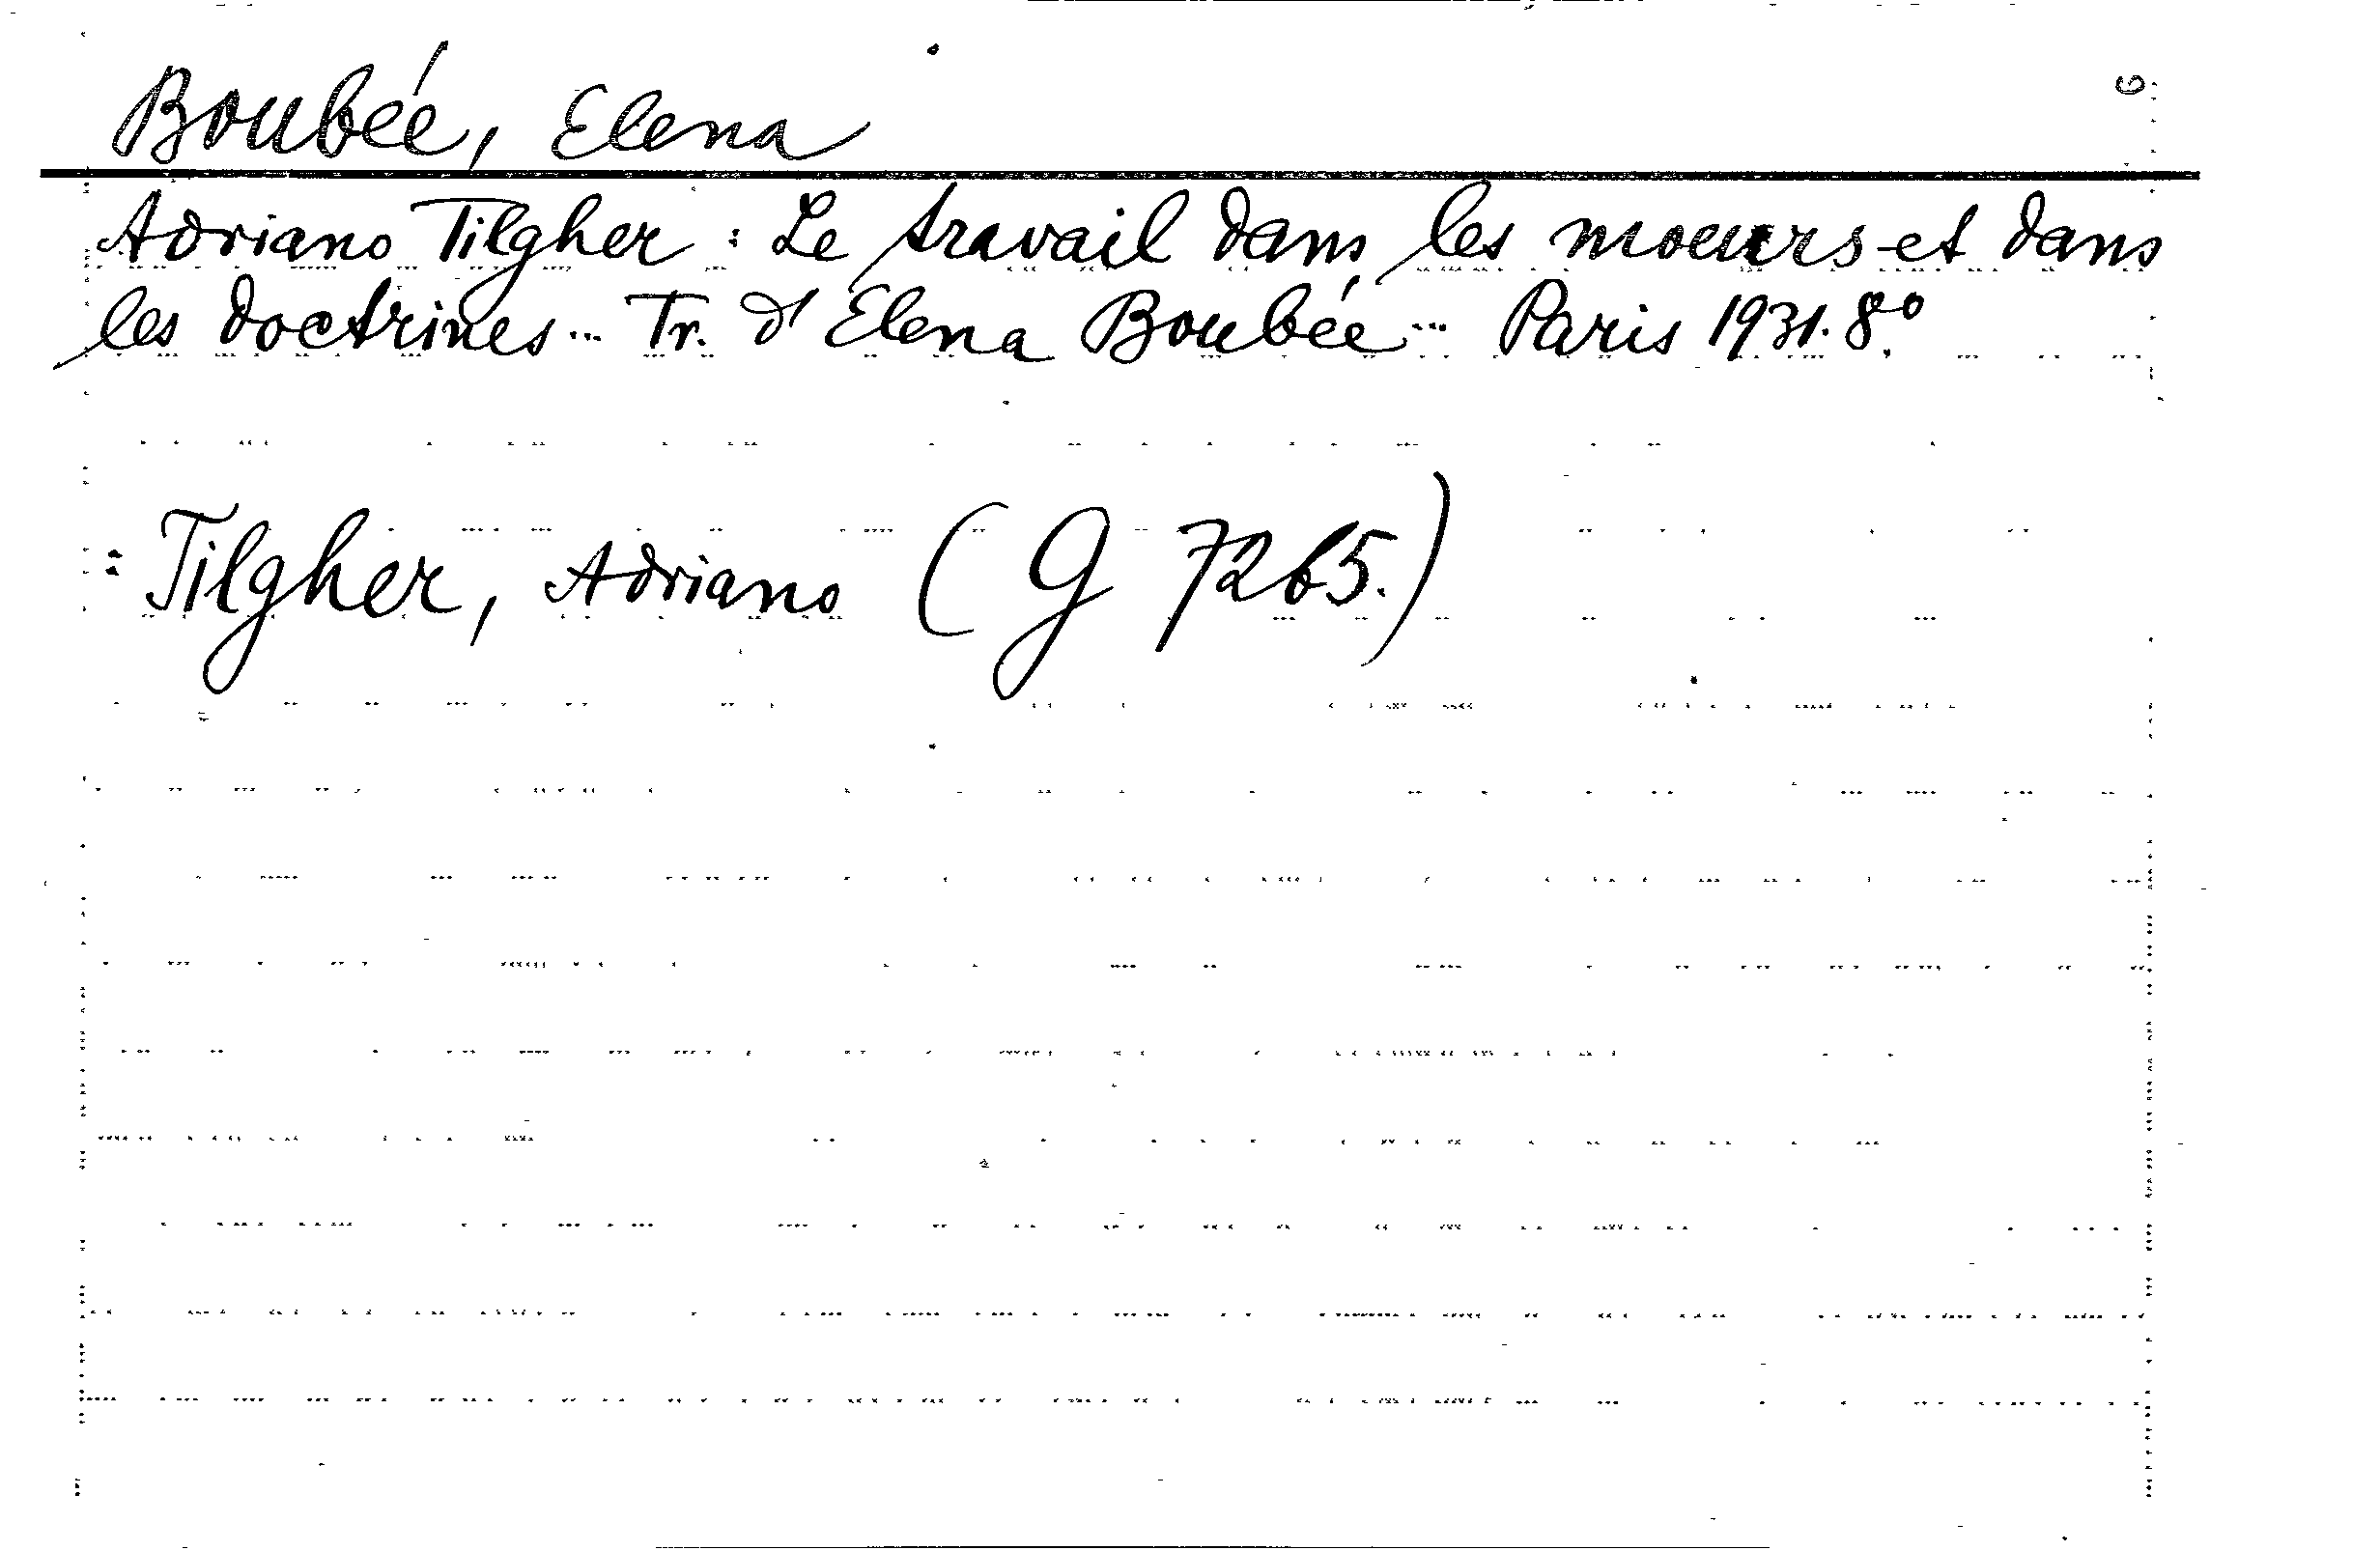 Boubée, Elena
Adriano Tilgher: Le travail dans les moeurs et dans
les doctrines... Tr. d'Elena Boubée... Paris 1931. 8°.
: Tilgher, Adriano (G 7265.)